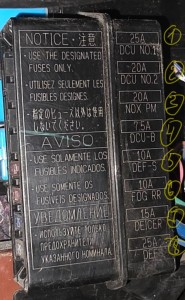 NOTICE・注意
・USE THE DESIGNATED
FUSES ONLY.
・UTILISEZ SEULEMENT LES
FUSIBLES DESIGNES.
・指定のヒューズ以外は使用
しないでください。
AVISO
・USE SOLAMENTE LOS
FUSIBLES INDICADOS.
・USE SOMENTE OS
FUSÍVEIS DESIGNADOS.
УВЕДОМЛЕНИЕ
・ИСПОЛЬЗУЙТЕ ТОЛЬКО
ПРЕДОХРАНИТЕЛИ
УКАЗАННОГО НОМИНАЛА.
25A
DCU NO.1
1
20A
DCU NO.2
2
20A
NOX PM
3
7.5A
DCU-B
4
10A
DEF-S
5
10A
FOG RR
6
15A
DEICER
7
25A
DEF
8